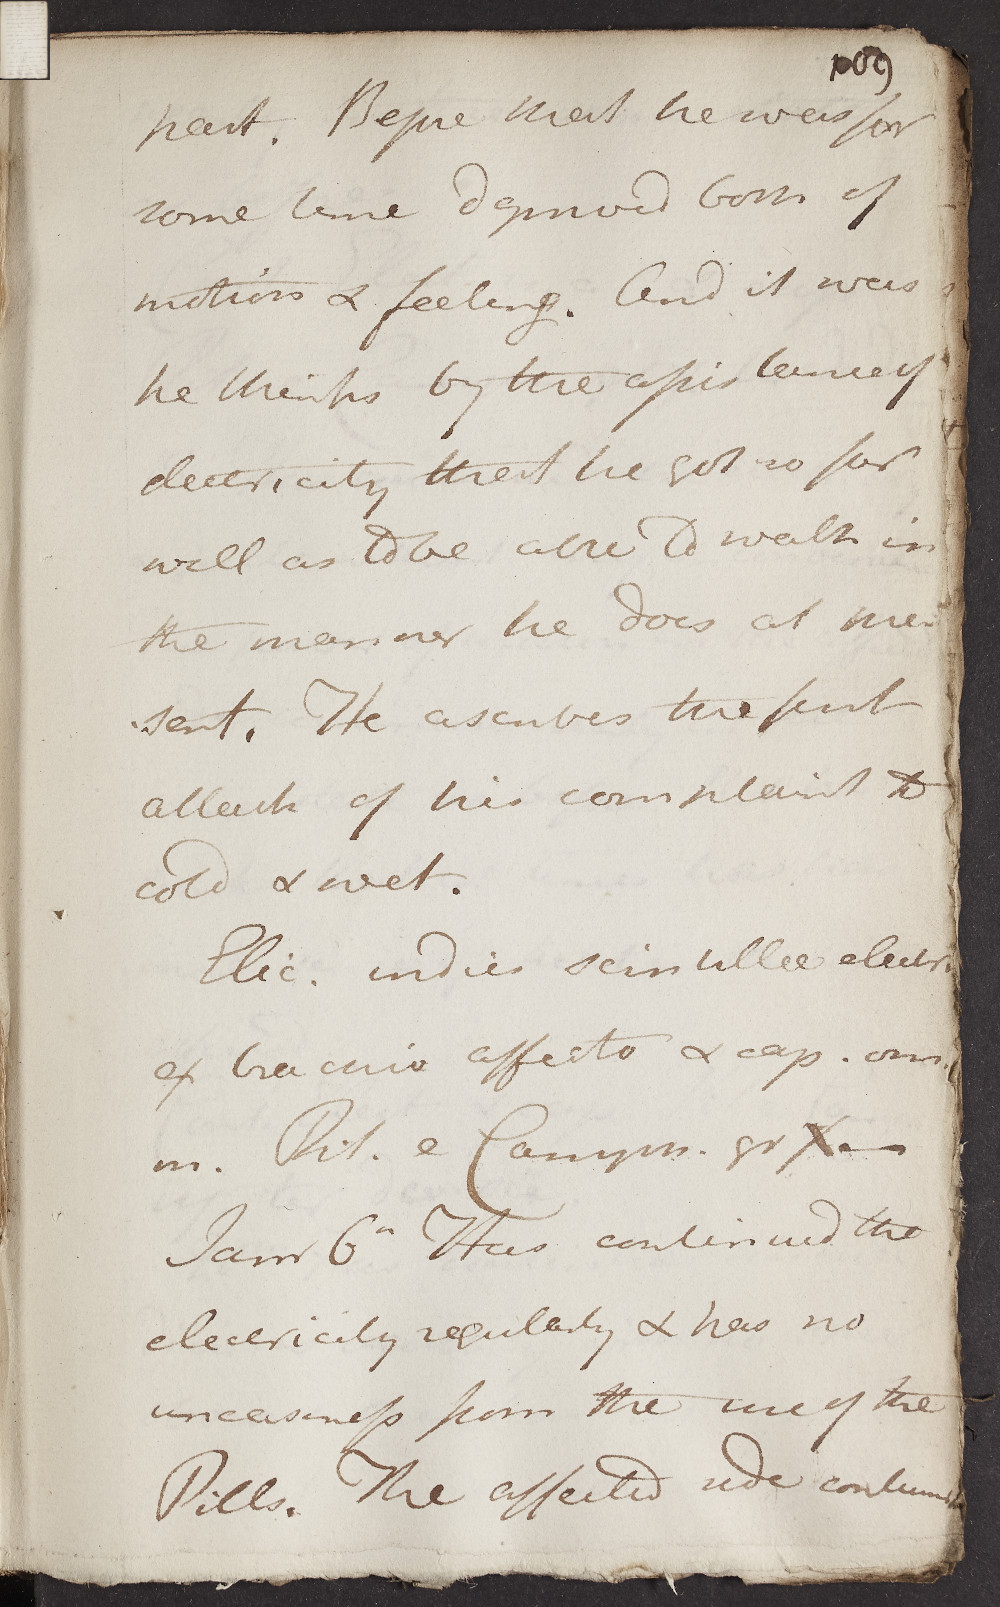 109
part. Before that he was for
some time deprived both of
motion & feeling. And it was
he thinks by the assistance of
electricity that he got so far
well as to be able to walk in
the manner he does at pre
sent. He ascribes the first
attack of his complaint to
cold & wet.
Elic. indies scintillae electr.
ex brachio affecto & cap. om.
m. Pil. e Camph. gr X
Janr 6th Has continued the
electricity regularly & has no
uneasiness from the use of the
Pills. The affected side continues